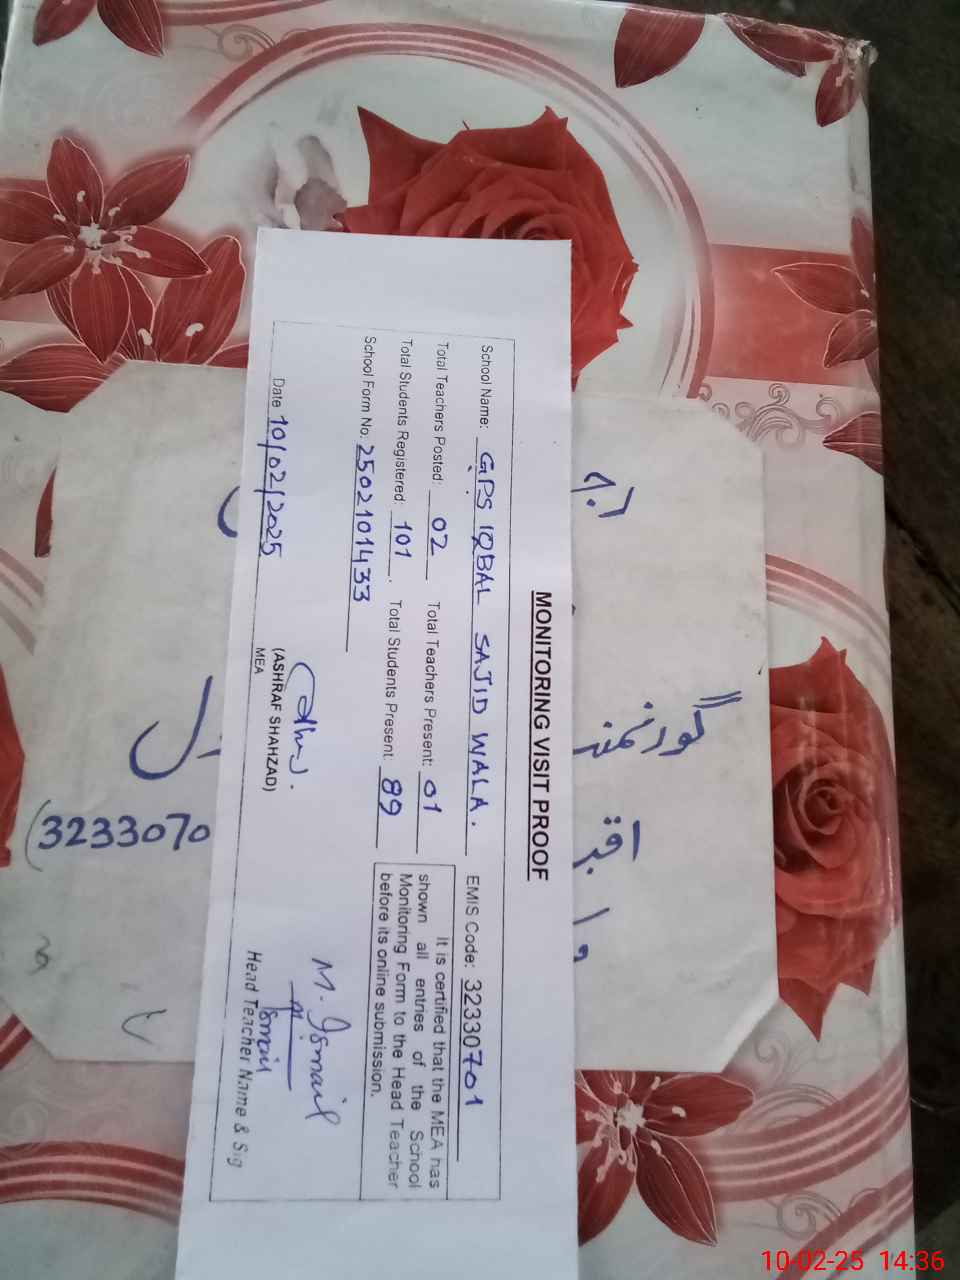 MONITORING VISIT PROOF
School Name: GPS IQBAL SAJID WALA. EMIS Code: 32330701
Total Teachers Posted: 02 Total Teachers Present: 01
Total Students Registered: 101. Total Students Present: 89
School Form No: 2502101433
It is certified that the MEA has
shown all entries of the School
Monitoring Form to the Head Teacher
before its online submission.
Date 10/02/2025
(ASHRAF SHAHZAD)
MEA
M. Ismail
Head Teacher Name & Sig
گورنمنٹ
(3233070
10-02-25 14:36